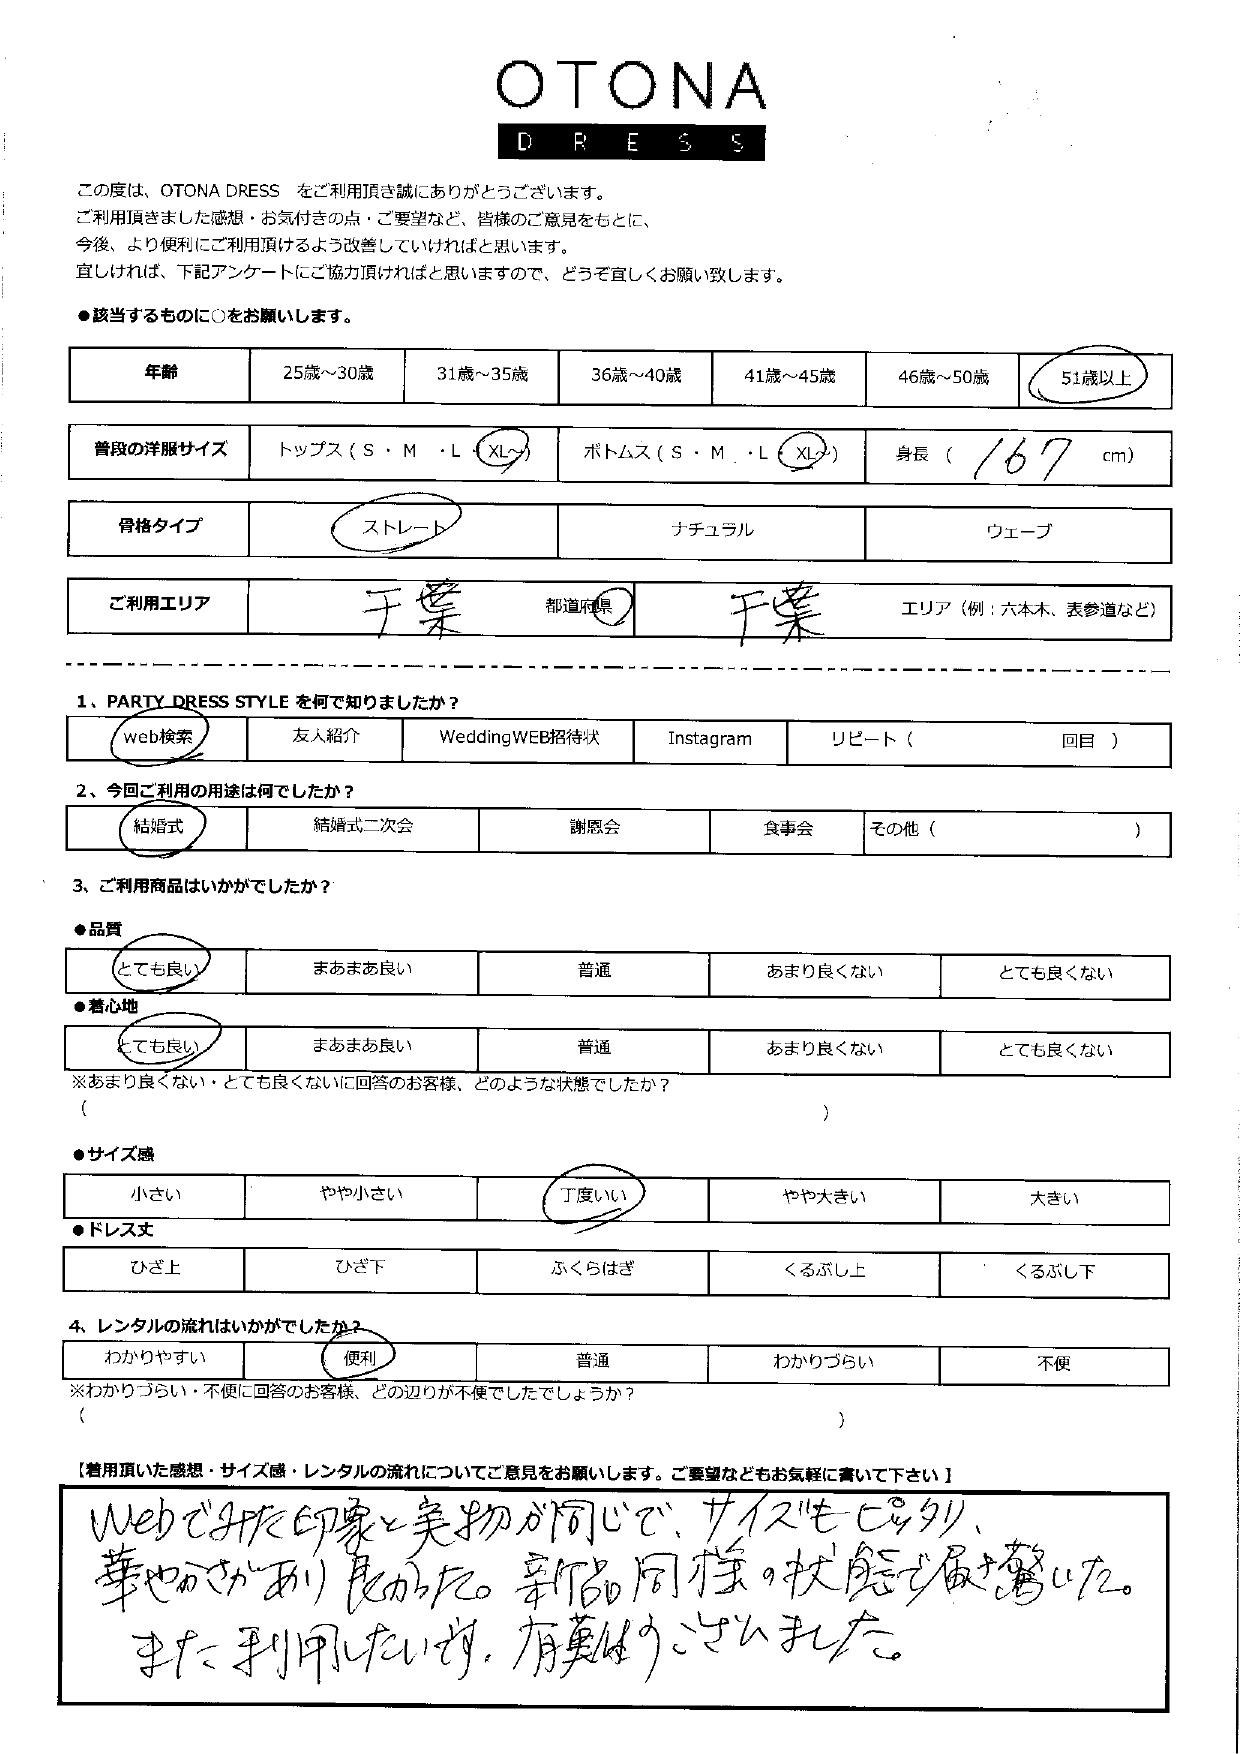 OTONA
DRESS
この度は、OTONA DRESS　をご利用頂き誠にありがとうございます。
ご利用頂きました感想・お気付きの点・ご要望など、皆様のご意見をもとに、
今後、より便利にご利用頂けるよう改善していければと思います。
宜しければ、下記アンケートにご協力頂ければと思いますので、どうぞ宜しくお願い致します。
●該当するものに○をお願いします。
年齢 25歳～30歳 31歳～35歳 36歳～40歳 41歳～45歳 46歳～50歳 51歳以上
普段の洋服サイズ トップス（ S ・ M ・L ・XL～） ボトムス（ S ・ M ・L ・XL～） 身長（ 167 cm）
骨格タイプ ストレート ナチュラル ウェーブ
ご利用エリア 千葉 都道府県 千葉 エリア（例：六本木、表参道など）
1、PARTY DRESS STYLE を何で知りましたか？
web検索 友人紹介 WeddingWEB招待状 Instagram リピート（ 回目 ）
2、今回ご利用の用途は何でしたか？
結婚式 結婚式二次会 謝恩会 食事会 その他（ ）
3、ご利用商品はいかがでしたか？
●品質
とても良い まあまあ良い 普通 あまり良くない とても良くない
●着心地
とても良い まあまあ良い 普通 あまり良くない とても良くない
※あまり良くない・とても良くないに回答のお客様、どのような状態でしたか？
（ ）
●サイズ感
小さい やや小さい 丁度いい やや大きい 大きい
●ドレス丈
ひざ上 ひざ下 ふくらはぎ くるぶし上 くるぶし下
4、レンタルの流れはいかがでしたか？
わかりやすい 便利 普通 わかりづらい 不便
※わかりづらい・不便に回答のお客様、どの辺りが不便でしたでしょうか？
（ ）
【着用頂いた感想・サイズ感・レンタルの流れについてご意見をお願いします。ご要望などもお気軽に書いて下さい】
Webでみた印象と実物が同じで、サイズもピッタリ、
華やかさがあり良かった。新品同様の状態で届き驚いた。
また利用したいです。有難うございました。